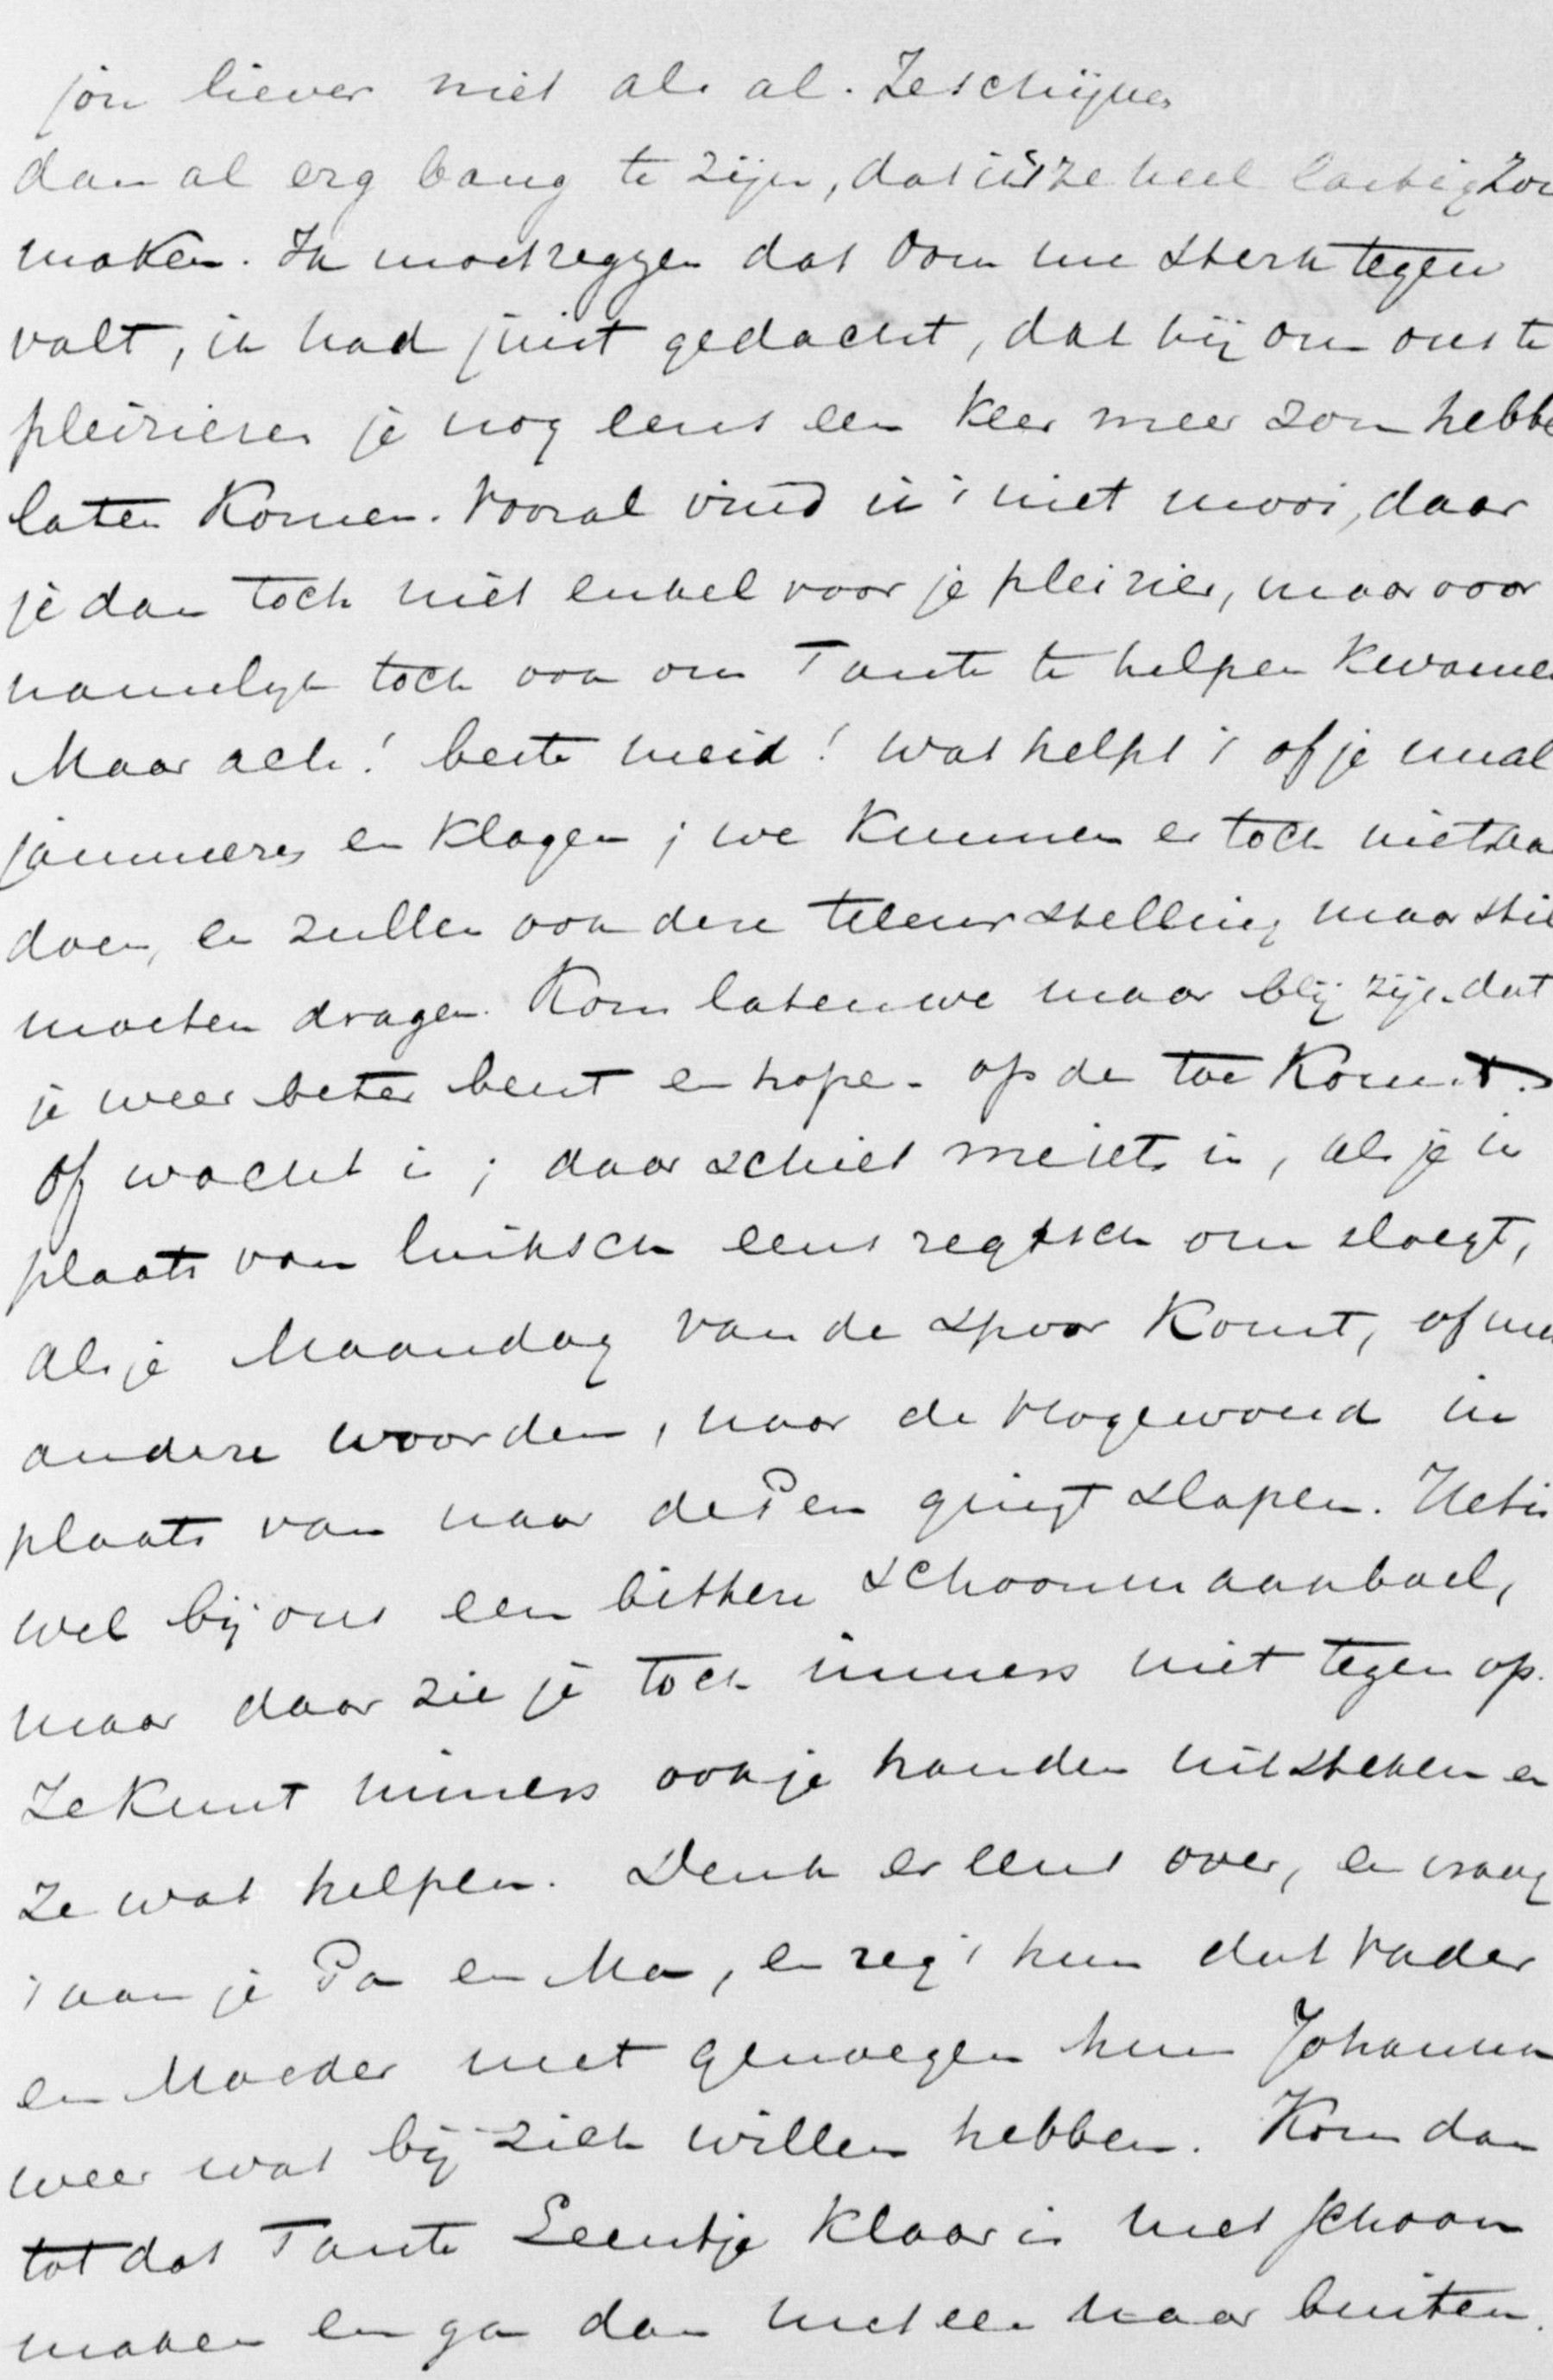 jou liever niet als al. Ze schijnen
dan al erg bang te zijn, dat ik 't ze heel lastig zou
maken. Ik moet zeggen dat Oom me sterk tegen
valt, ik had juist gedacht, dat hij om ons te
pleizieren je nog eens een keer meer zou hebbe
laten komen. Vooral vind ik 't niet mooi, daar
je dan toch niet enkel voor je pleizier, maar voor
namelijk toch ook om Tante te helpen kwame
Maar ach! beste meid! wat helpt 't of je nu al
jammeren en klagen; we kunnen er toch niets aa
doen, en zullen ook deze teleurstelling maar stil
moeten dragen. Kom laten we maar blij zijn dat
je weer beter bent en hopen op de toekomst.
Of wacht is; daar schiet me iets in, als je in
plaats van linksch eens regtsch om sloegt,
als je Maandag van de spoor komt, of me
andere woorden, naar de Hogewoerd in
plaats van naar de Pen gingt slapen. Het is
wel bij ons een bittere schoonmaakboel,
maar daar zie je toch immers niet tegen op.
Je kunt immers ook je handen uitsteken en
ze wat helpen. Denk er eens over, en vraag
't aan je Pa en Ma, en zeg 't hun dat Vader
en Moeder met genoegen hun Johanna
weer wat bij zich willen hebben. Kom dan
tot dat Tante Leentje klaar is met schoon
maken en ga dan met een naar buiten.